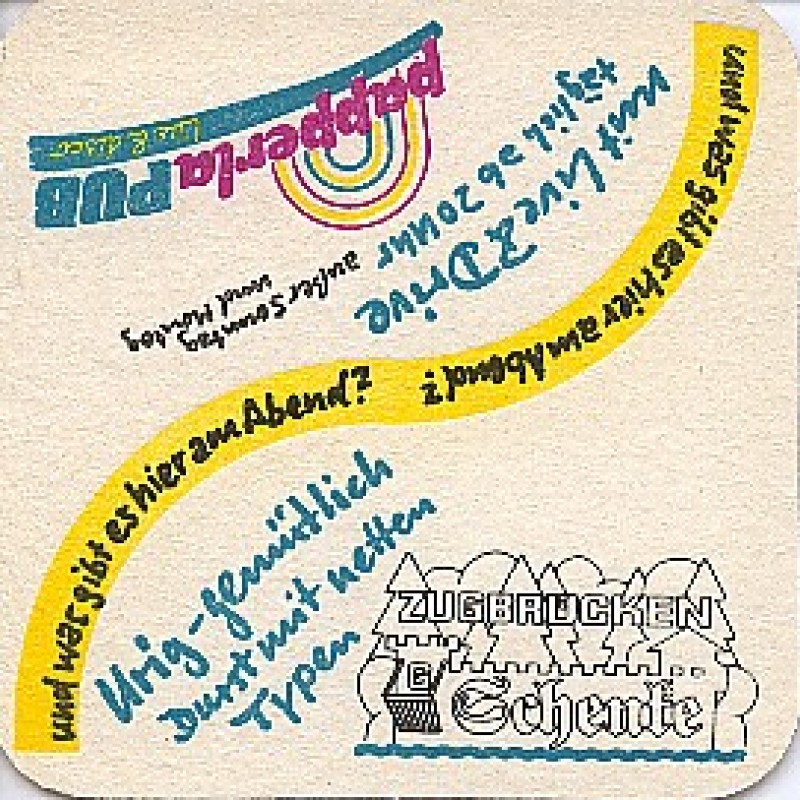 und was gibt es hier am Abend?
Urig-gemütlich
Durst mit netten
Typen
ZUGBRÜCKEN
Schenke
und was gibt es hier am Abend?
mit Live & Drive
täglich ab 20 Uhr
außer Sonntag
und Montag
papperla PUB
live & disco